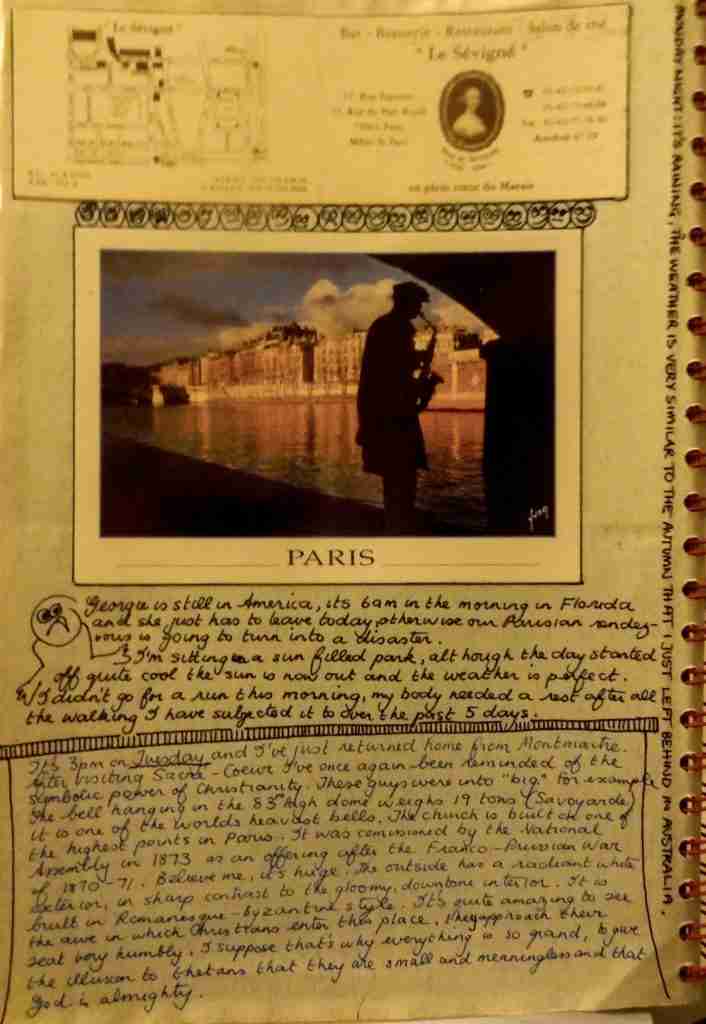 "Le Sévigné"
Bar - Brasserie - Restaurant - Salon de thé
"Le Sévigné"
en plein cœur du Marais
PARIS
Georgie is still in America, its 6am in the morning in Florida
and she just has to leave today, otherwise our Parisian rendez-
vous is going to turn into a disaster.
I'm sitting in a sun filled park, although the day started
off quite cool the sun is now out and the weather is perfect.
I didn't go for a run this morning, my body needed a rest after all
the walking I have subjected it to over the past 5 days.
It's 3pm on Tuesday and I've just returned home from Montmartre.
After visiting Sacré-Coeur I've once again been reminded of the
symbolic power of Christianity. These guys were into "big" for example
the bell hanging in the 83m high dome weighs 19 tons (Savoyarde)
it is one of the worlds heaviest bells. The church is built on one of
the highest points in Paris. It was comissioned by the National
Assembly in 1873 as an offering after the Franco-Prussian War
of 1870-71. Believe me, it's huge. The outside has a radiant white
exterior, in sharp contrast to the gloomy, downtone interior. It is
built in Romanesque-Byzantine style. It's quite amazing to see
the awe in which Christians enter this place, they approach their
seat very humbly. I suppose that's why everything is so grand, to give
the illusion to thetans that they are small and meaningless and that
God is almighty.
MONDAY NIGHT: IT'S RAINING, THE WEATHER IS VERY SIMILAR TO THE AUTUMN THAT I JUST LEFT BEHIND IN AUSTRALIA.